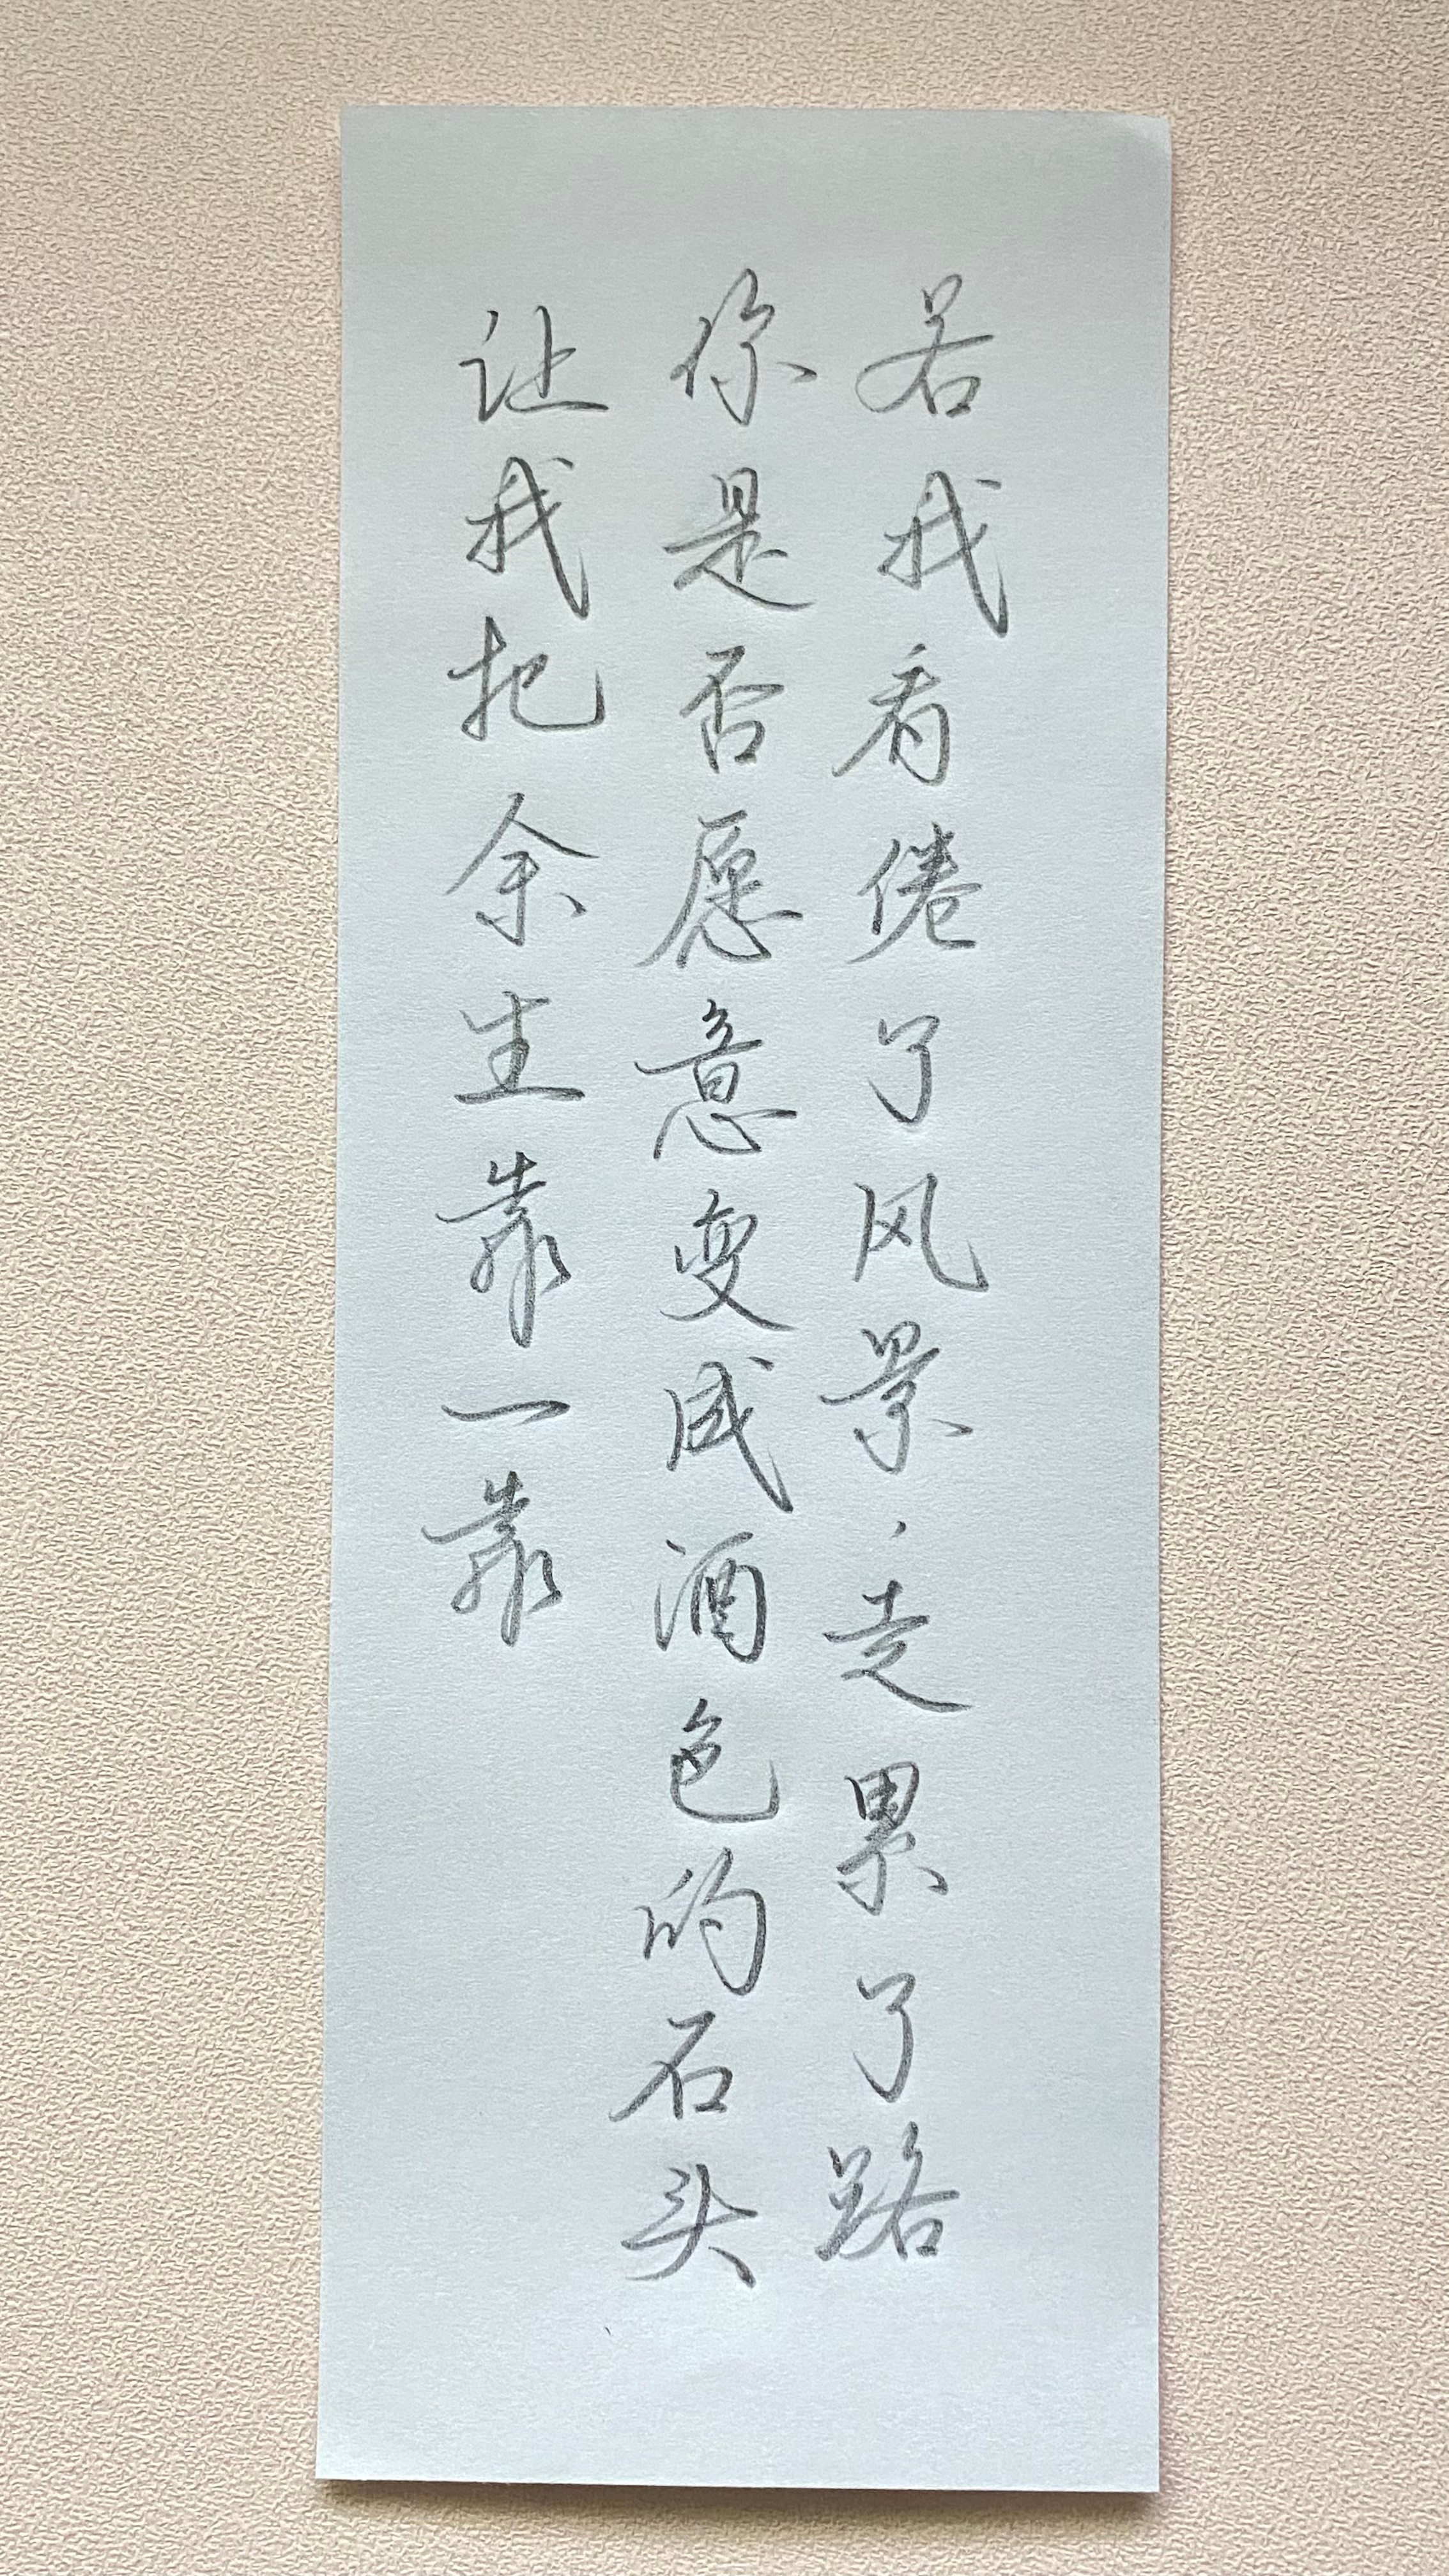 若我看倦了风景、走累了路
你是否愿意变成酒色的石头
让我把余生靠一靠